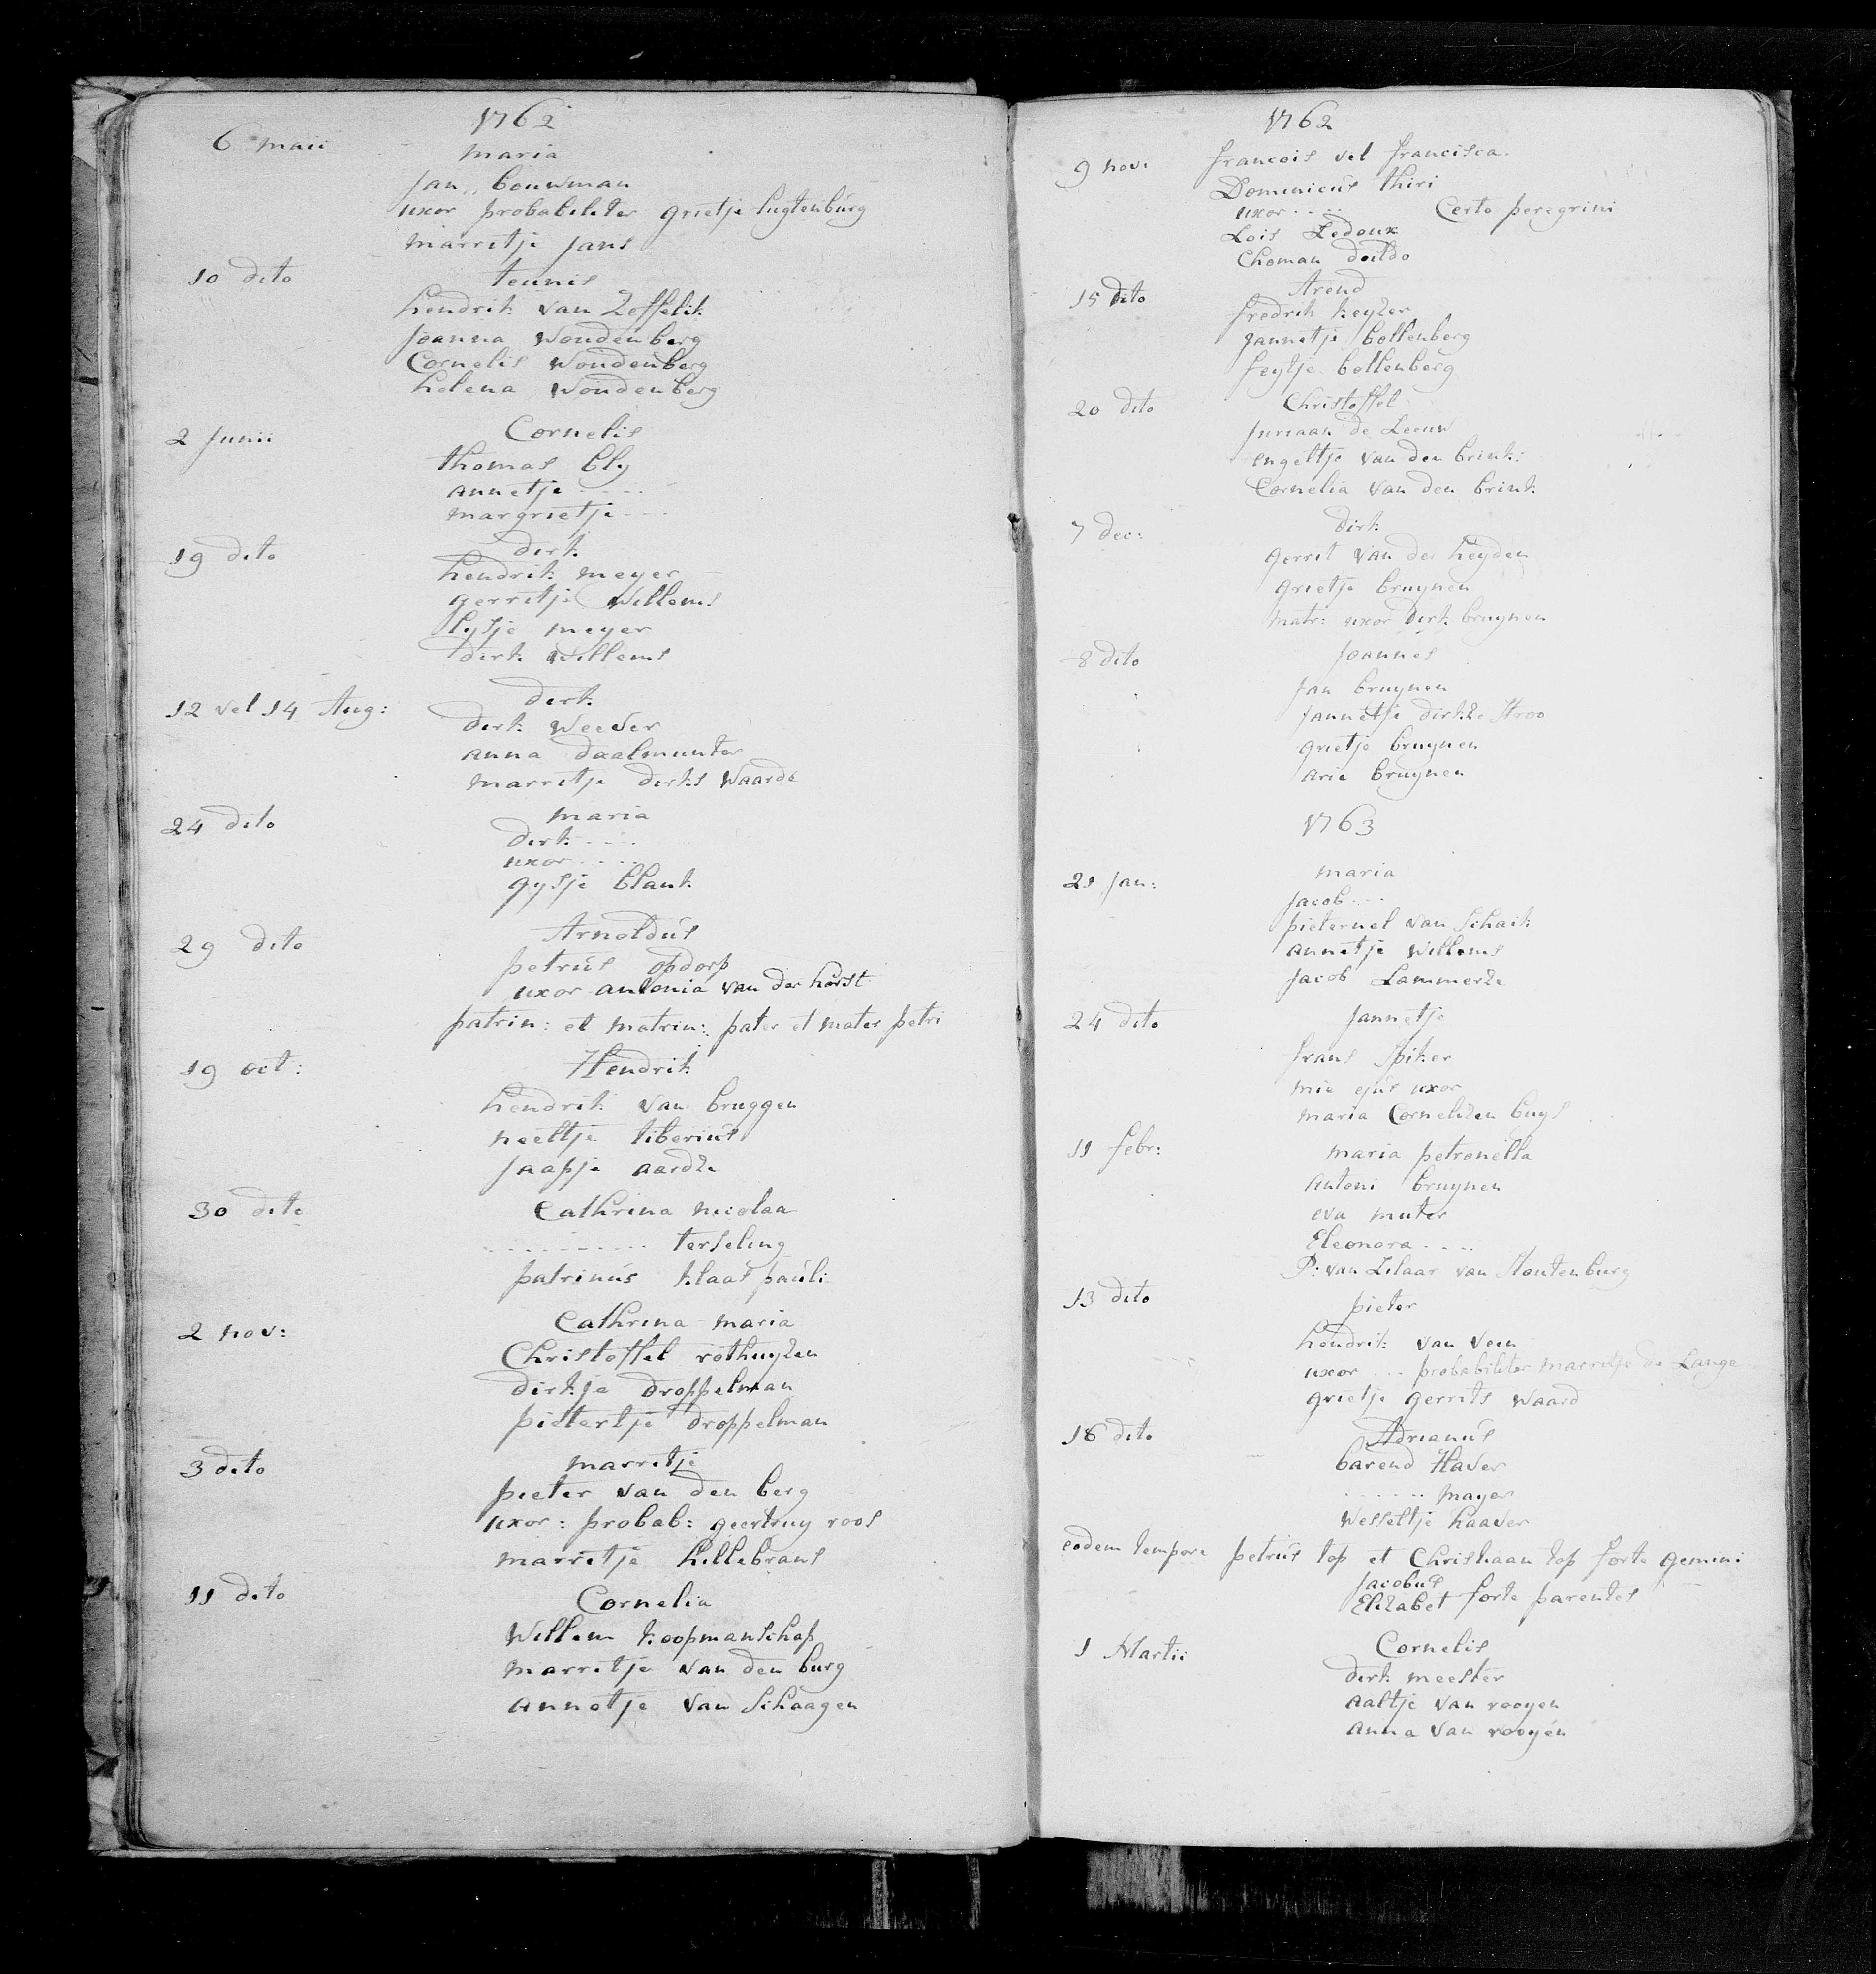 1762
6 maii maria
Jan bouwman
uxor probabiliter grietje lugtenburg
marretje Jans
10 dito teunis
hendrik van Zeffelik
Joanna Woudenberg
Cornelis Woudenberg
helena Woudenberg
2 Junii Cornelis
thomas bly
annetje ....
margrietje ...
19 dito dirk
hendrik meyer
gerritje Willems
lysje meyer
dirk Willems
12 vel 14 Aug: dirk
dirk Weever
anna daelmunter
marretje dirks Waarde
24 dito maria
dirk ....
uxor ....
gysje blank
29 dito Arnoldus
petrus opdorp
uxor antonia van der horst
patrin: et matrin: pater et mater petri
19 oct: Hendrik
hendrik van bruggen
neeltje tiberius
Jaapje aardze
30 dito Cathrina nicolaa
.......... terseling
patrinus klaas pauli
2 nov: Cathrina maria
Christoffel rothuyzen
dirkje droppelman
pietertje droppelman
3 dito marretje
pieter van den berg
uxor: probab: geertruy roos
marretje hillebrans
11 dito Cornelia
Willem koopmanschap
marretje van den burg
annetje van Schaagen
1762
9 nov: francois vel francisca
Dominicus thiri
uxor .... Certo peregrini
Lois Ledoux
Choman doildo
15 dito Arend
fredrik keyzer
Jannetje bollenberg
feytje bollenberg
20 dito Christoffel
Juriaan de Leeuw
engeltje van den brink:
Cornelia van den brink
7 dec: dirk
gerrit van der heyden
grietje bruynen
matr: uxor dirk bruynen
8 dito Joannes
Jan bruynen
Jannetje dirkze Stroo
grietje bruynen
arie bruynen
1763
21 Jan: maria
Jacob ...
pieternel van Schaik
annetje Willems
Jacob Lammerze
24 dito Jannetje
frans Spiker
mie ejus uxor
maria Cornelizen buys
11 febr: maria petronella
antoni bruynen
eva muter
Eleonora ....
P: van Lilaar van Stoutenburg
13 dito pieter
hendrik van veen
uxor ... probabiliter marretje de Lange
grietje gerrits waard
16 dito Adrianus
barend Haver
...... mayer
Wesseltje haaver
eodem tempore petrus top et Christiaan top forte gemini
Jacobus
Elizabet forte parentes
1 Martii Cornelis
dirk meester
aaltje van rooyen
anna van rooyen